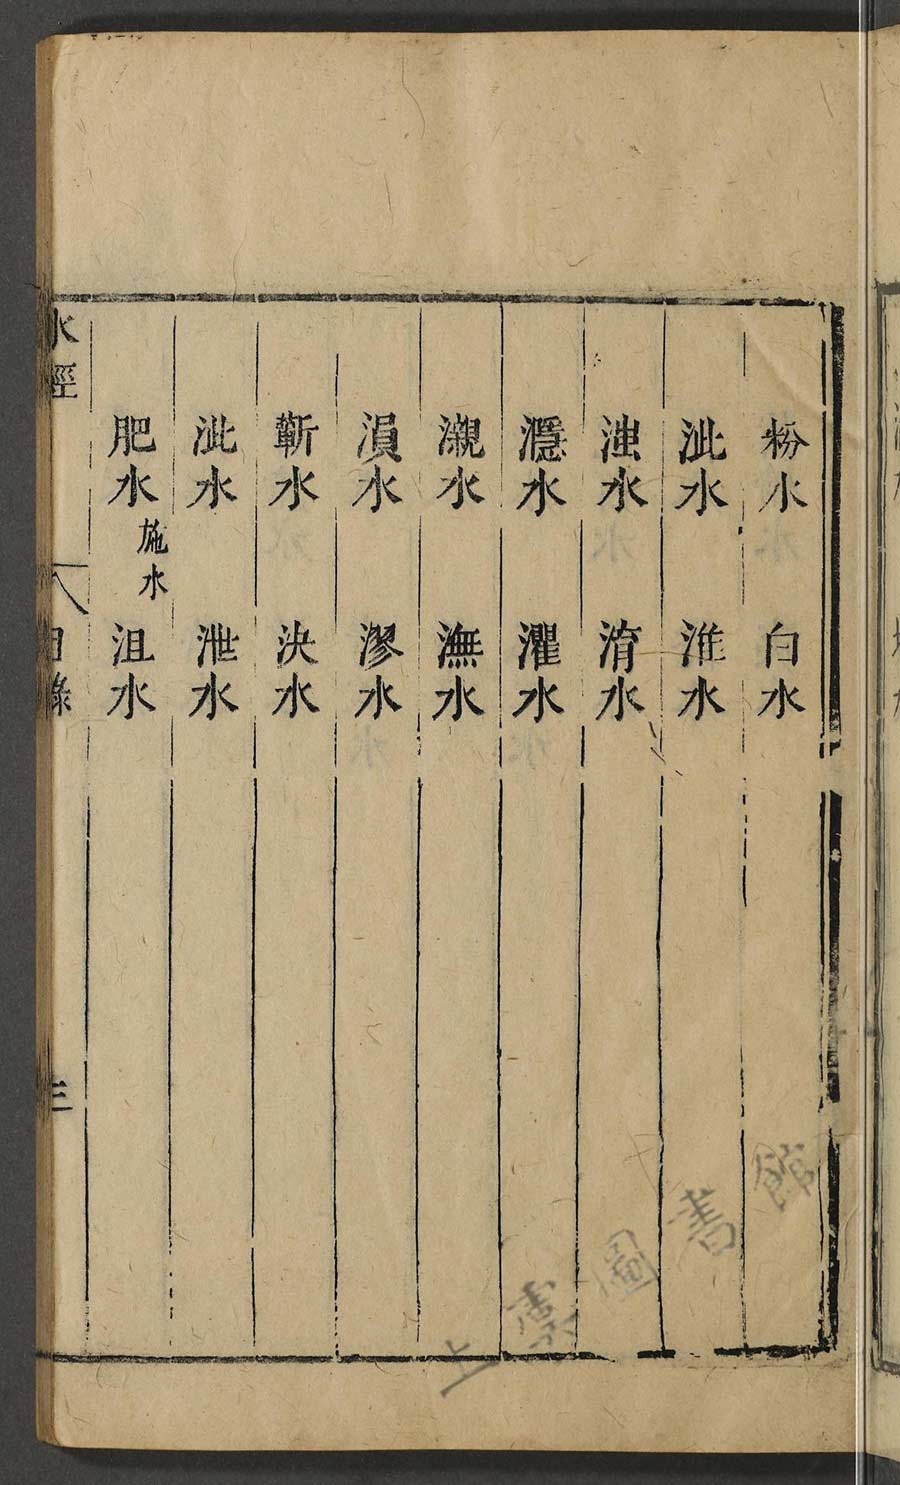 粉水 白水
沘水 淮水
滍水 淯水
㶏水 灈水
瀙水 潕水
溳水 漻水
蘄水 決水
沘水 泄水
肥水 施水 沮水
水經 目錄 三
上虞圖書館